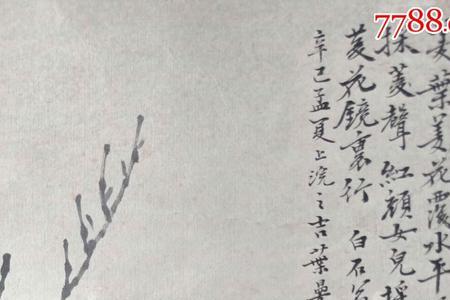 7788.c
葉菱花覆水平
採菱聲 紅顏女兒
菱花鏡裏行 白石
辛巳孟夏上浣之吉葉